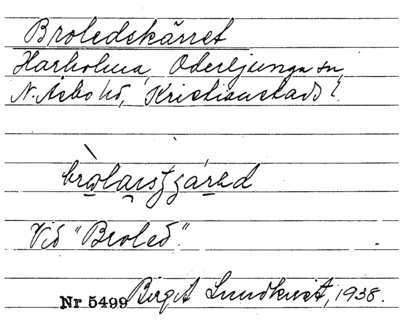 Broledskärret
Harholma, Oderljunga sn,
N. Åsbo hd, Kristianstads l.
Vid "Broled".
Nr 5499 Birgit Lundkvist, 1938.